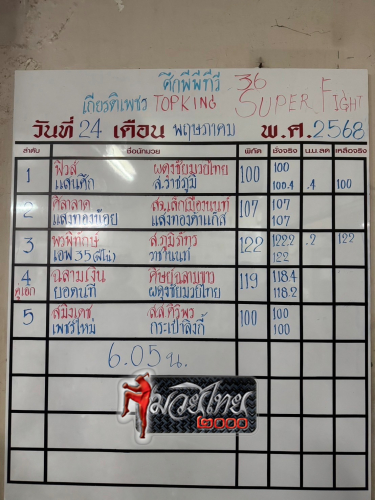 ศึกพีพีทีวี 36
เกียรติเพชร TOPKING SUPER FIGHT
วันที่ 24 เดือน พฤษภาคม พ.ศ. 2568
ลำดับ ชื่อนักมวย พิกัด ชั่งจริง น.น.ลด เหลือจริง
1 ฟิวส์ ผดุงชัยมวยไทย 100 100
แสนศึก ส.ราชภูมิ 100.4 .4 100
2 ศิลาลาด สจ.เล็กเมืองนนท์ 107 107
แสงทองน้อย แสงทองคำแก๊ส 107
3 พรพิทักษ์ ส.ภูมิภัทร 122 122.2 .2 122
เอฟ 35 วชานนท์ 122
4 ฉลามเงิน ศิษย์ฉลามขาว 119 118.4
คู่เอก ยอดนที ผดุงชัยมวยไทย 118.2
5 สมิงเดช ส.ส.ศิริพร 100 100
เพชรใหม่ กระเป๋าลิงกี้ 100
6.05 น.
มวยไทย
๒๐๐๐